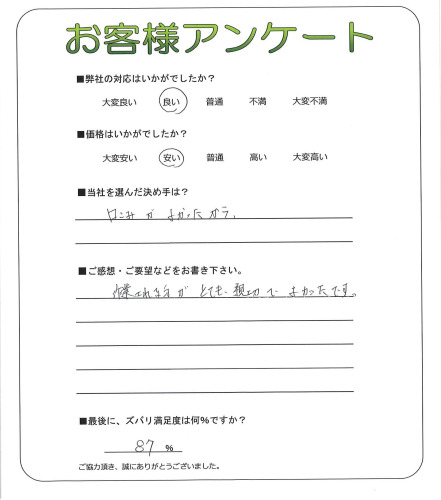 お客様アンケート
■弊社の対応はいかがでしたか？
大変良い 良い 普通 不満 大変不満
■価格はいかがでしたか？
大変安い 安い 普通 高い 大変高い
■当社を選んだ決め手は？
口こみが よかったから。
■ご感想・ご要望などをお書き下さい。
が とても 親切で よかったです。
■最後に、ズバリ満足度は何％ですか？
87 ％
ご協力頂き、誠にありがとうございました。